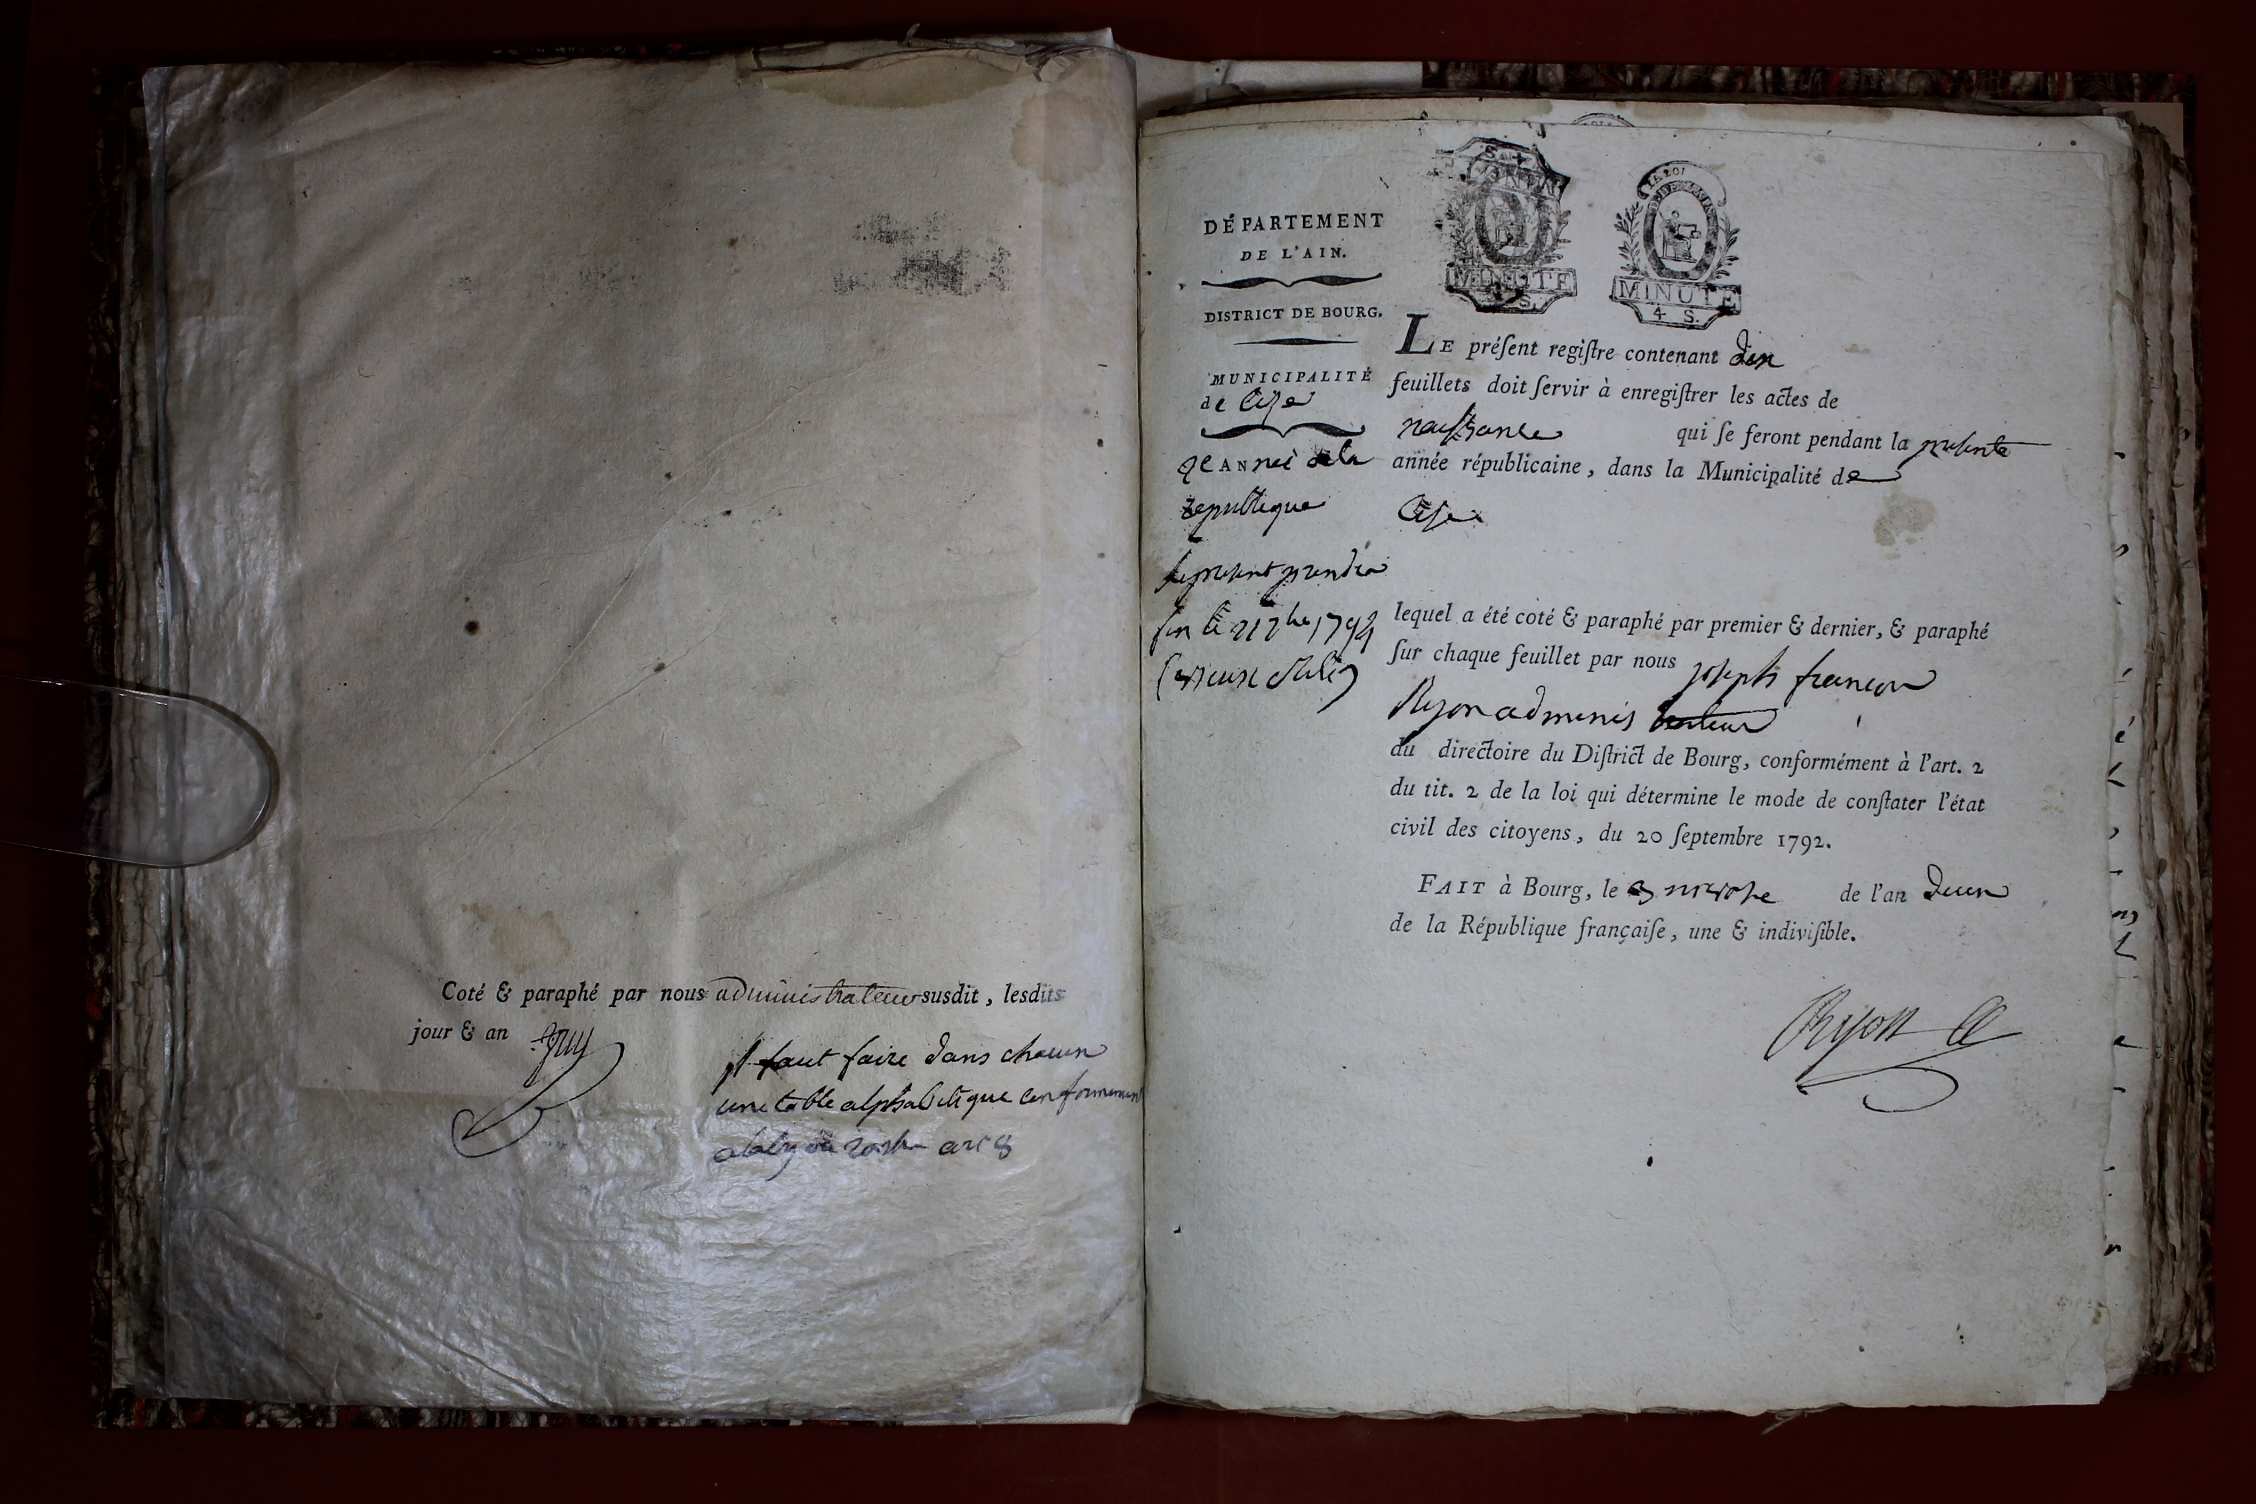 Coté & paraphé par nous administrateur susdit, lesdits
jour & an
il faut faire dans chacun
une table alphabetique conformement
art 8
DÉPARTEMENT
DE L'AIN.
DISTRICT DE BOURG.
MUNICIPALITÉ
de Cize
2e ANneé de la
republique
le present prendra
fin le 1794
MINUTE
S.
LA LOI
MINUTE
4 S.
LE préſent regiſtre contenant dix
feuillets doit ſervir à enregiſtrer les actes de
naiſsance qui ſe feront pendant la preſente
année républicaine, dans la Municipalité de
Cize
lequel a été coté & paraphé par premier & dernier, & paraphé
ſur chaque feuillet par nous joseph francois
Ryon adminis trateur
du directoire du Diſtrict de Bourg, conformément à l'art. 2
du tit. 2 de la loi qui détermine le mode de conſtater l'état
civil des citoyens, du 20 ſeptembre 1792.
FAIT à Bourg, le 3 nivose de l'an deux
de la République françaiſe, une & indiviſible.
Ryon